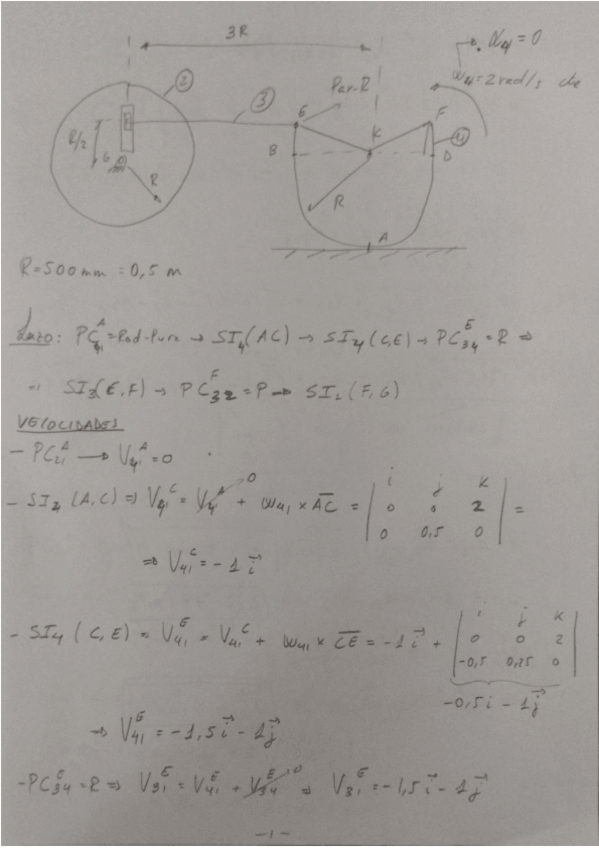 3R
α₄₁ = 0
ω₄₁ = 2 rad/s
②
③
Par-R
E
F
K
④
B
D
R/2
G
R
R
A
R = 500 mm = 0,5 m
PC₄₁ᴬ = Rod-Pura → SI₄(AC) → SI₄(C,E) → PC₃₄ᴱ = R ⇒
⇒ SI₃(E,F) → PC₃₂ᶠ = P → SI₂(F,G)
VELOCIDADES
- PC₄₁ᴬ → V₄₁ᴬ = 0
- SI₄(A,C) ⇒ V₄₁ᶜ = V₄₁ᴬ⁰ + ω₄₁ × AC = | i j k | =
| 0 0 2 |
| 0 0,5 0 |
⇒ V₄₁ᶜ = -1 i
- SI₄(C,E) = V₄₁ᴱ = V₄₁ᶜ + ω₄₁ × CE = -1 i + | i j k |
| 0 0 2 |
| -0,5 0,25 0 |
-0,5i - 1j
→ V₄₁ᴱ = -1,5i - 1j
- PC₃₄ᴱ = R ⇒ V₃₁ᴱ = V₄₁ᴱ + V₃₄ᴱ⁰ ⇒ V₃₁ᴱ = -1,5i - 1j
-1-